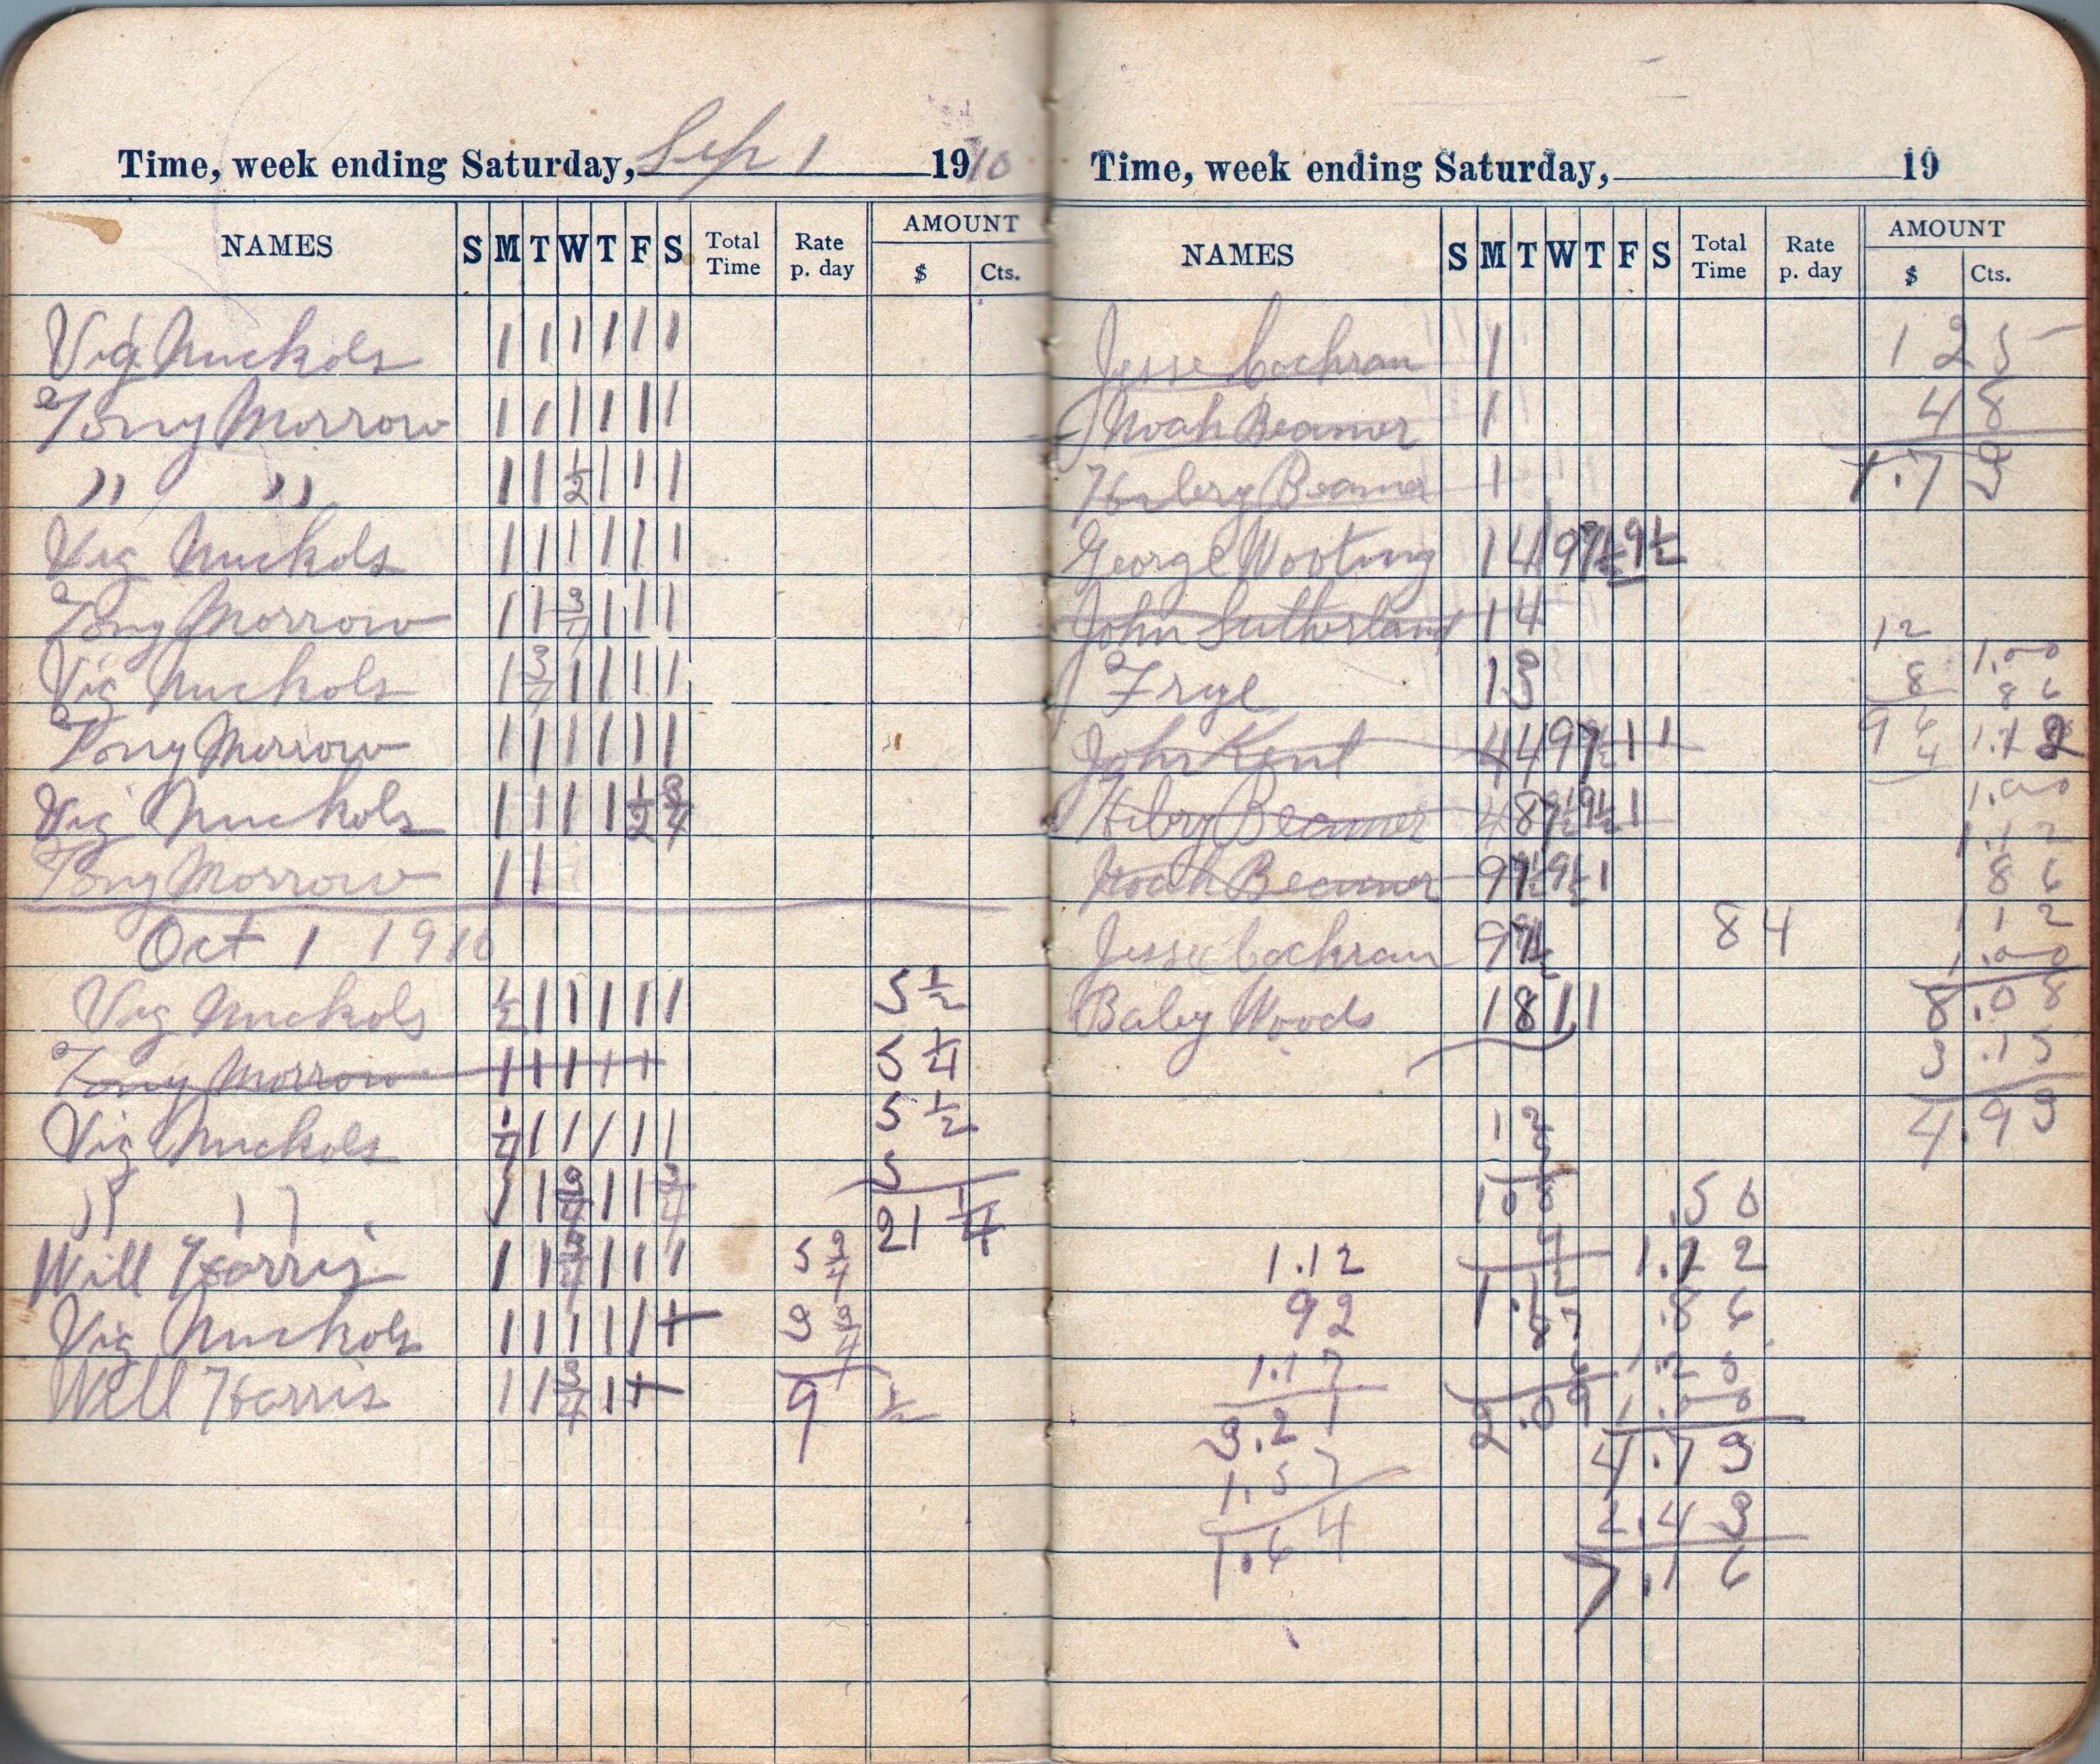 Time, week ending Saturday, Sep 1 1910
NAMES S M T W T F S Total Time Rate p. day AMOUNT $ Cts.
Vig Nuckols 1 1 1 1 1 1
Tony Morrow 1 1 1 1 1 1
" " 1 1 1/2 1 1 1
Vig Nuckols 1 1 1 1 1 1
Tony Morrow 1 1 3/4 1 1 1
Vig Nuckols 1 3/4 1 1 1 1
Tony Morrow 1 1 1 1 1 1
Vig Nuckols 1 1 1 1 1/2 3/4
Tony Morrow 1 1
Oct 1 1910
Vig Nuckols 1/2 1 1 1 1 1 5 1/2
Tony Morrow 1 1 1 1 1 5 1/4
Vig Nuckols 1/4 1 1 1 1 1 5 1/2
" " 1 1 3/4 1 1 3/4 5
21 1/4
Will Harris 1 1 3/4 1 1 1 5 3/4
Vig Nuckols 1 1 1 1 1 1 3 3/4
Will Harris 1 1 3/4 1 1 9 1/2
Time, week ending Saturday, 19
NAMES S M T W T F S Total Time Rate p. day AMOUNT $ Cts.
Jesse Cochran 1 1 25
Noah Beamer 1 48
Beamer 1 1.73
George Wooting 14 9 9 1/2 9 1/2
John Sutherland 14
12 1.00
Frye 13 8 86
John Kent 4 4 9 9 1/2 1 1 96 1.12
4
1.00
Beamer 4 8 9 1/2 9 1/2 1 1.12
Noah Beamer 9 9 1/2 9 1/2 1 86
Jesse Cochran 9 9 1/2 84 112
1.00
Baby Woods 1 8 1 1 8.08
3.15
4.93
12
108 .50
1.12 1.12
92 .86
1.17 1.25
2.09 1.00
3.21 4.73
1.57 2.43
1.64 7.16